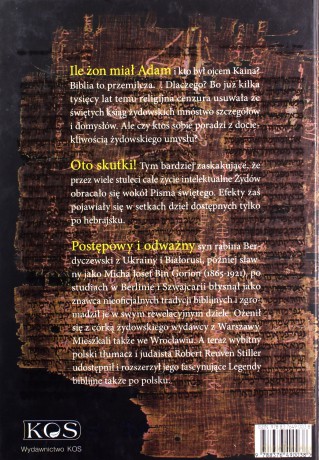 Ile żon miał Adam i kto był ojcem Kaina?
Biblia to przemilcza. Dlaczego? Bo już kilka
tysięcy lat temu religijna cenzura usuwała ze
świętych ksiąg żydowskich mnóstwo szczegółów
i domysłów. Ale czy ktoś sobie poradzi z docie-
kliwością żydowskiego umysłu?
Oto skutki! Tym bardziej zaskakujące, że
przez wiele stuleci całe życie intelektualne Żydów
obracało się wokół Pisma świętego. Efekty zaś
pojawiały się w setkach dzieł dostępnych tylko
po hebrajsku.
Postępowy i odważny syn rabina Ber-
dyczewski z Ukrainy i Białorusi, później sław-
ny jako Micha Josef Bin Gorion (1865-1921), po
studiach w Berlinie i Szwajcarii błysnął jako
znawca nieoficjalnych tradycji biblijnych i zgro-
madził je w swym rewelacyjnym dziele. Ożenił
się z córką żydowskiego wydawcy z Warszawy.
Mieszkali także we Wrocławiu. A teraz wybitny
polski tłumacz i judaista Robert Reuven Stiller
udostępnił i rozszerzył jego fascynujące Legendy
biblijne także po polsku.
KOS
Wydawnictwo KOS